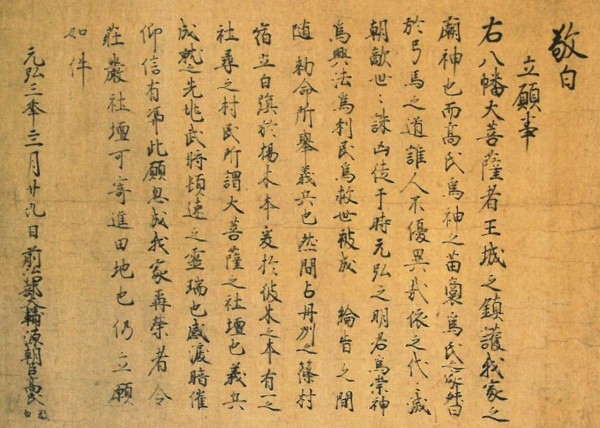 敬白
立願事
右八幡大菩薩者王城之鎮護我家之
廟神也而高氏為神之苗裔為氏之家督
於弓馬之道誰人不優異哉依之代々滅
朝敵世々誅凶徒于時元弘之明君為崇神
為興法為利民為救世被成 綸旨之間
随 勅命所挙義兵也然間占丹州之篠村
宿立白旗於楊木本爰於彼木之本有一之
社尋之村民所謂大菩薩之社壇也義兵
成就之先兆武将頓速之霊瑞也感涙暗催
仰信有憑此願忽成我家再栄者令
荘厳社壇可寄進田地也仍立願
如件
元弘三年三月廿九日 前治部大輔源朝臣高氏